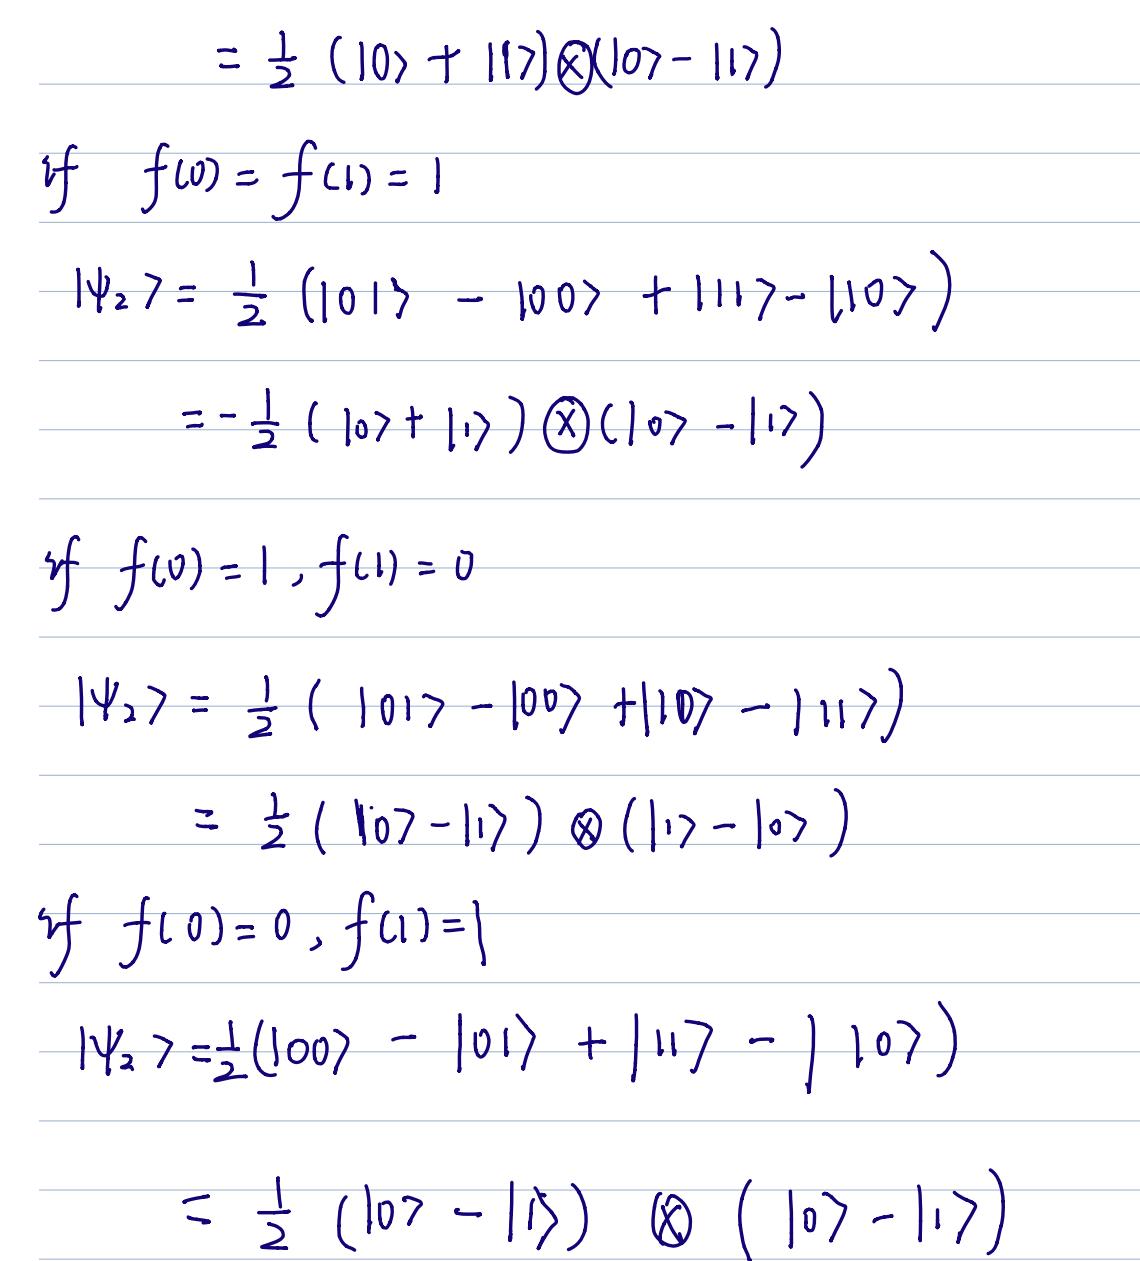 = 1/2 (|0⟩ + |1⟩)⊗(|0⟩ - |1⟩)
if f(0) = f(1) = 1
|ψ₂⟩ = 1/2 (|01⟩ - |00⟩ + |11⟩ - |10⟩)
= - 1/2 (|0⟩ + |1⟩) ⊗ (|0⟩ - |1⟩)
if f(0) = 1, f(1) = 0
|ψ₂⟩ = 1/2 (|01⟩ - |00⟩ + |10⟩ - |11⟩)
= 1/2 (|0⟩ - |1⟩) ⊗ (|1⟩ - |0⟩)
if f(0) = 0, f(1) = 1
|ψ₂⟩ = 1/2 (|00⟩ - |01⟩ + |11⟩ - |10⟩)
= 1/2 (|0⟩ - |1⟩) ⊗ (|0⟩ - |1⟩)